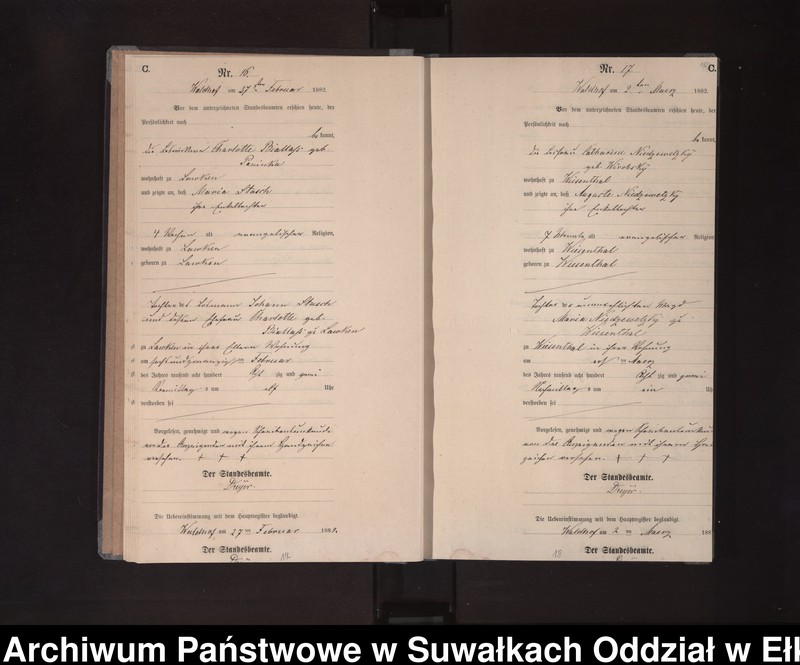 C.
Nr. 16.
Waldhof am 27ten Februar 1882.
Vor dem unterzeichneten Standesbeamten erschien heute, der
Persönlichkeit nach
bekannt,
die Charlotte Biallaß geb.
wohnhaft zu Lawken
und zeigte an, daß Maria Stasch
ihre Enkeltochter
4 Wochen alt evangelischer Religion,
wohnhaft zu Lawken
geboren zu Lawken
Tochter des Johann Stasch
und dessen Ehefrau Charlotte geb.
Biallaß zu Lawken
zu Lawken in ihrer Eltern Wohnung
am sechsundzwanzigsten Februar
des Jahres tausend acht hundert achtzig und zwei
Vormittags um elf Uhr
verstorben sei
Vorgelesen, genehmigt und wegen Schreibensunkunde
von der Anzeigenden mit ihrem Handzeichen
versehen. + + +
Der Standesbeamte.
Dreyer.
Die Uebereinstimmung mit dem Hauptregister beglaubigt.
Waldhof am 27ten Februar 1882.
Der Standesbeamte.
C.
Nr. 17.
Waldhof am 2ten Maerz 1882.
Vor dem unterzeichneten Standesbeamten erschien heute, der
Persönlichkeit nach
bekannt,
die Catharine Niedzwetzky
geb.
wohnhaft zu Wiesenthal
und zeigte an, daß Auguste Niedzwetzky
ihre Enkeltochter
7 Monate alt evangelischer Religion
wohnhaft zu Wiesenthal
geboren zu Wiesenthal
Tochter der unverehelichten Magd
Maria Niedzwetzky zu
Wiesenthal
zu Wiesenthal in ihrer Wohnung
am ten Maerz
des Jahres tausend acht hundert achtzig und zwei
Nachmittags um ein Uhr
verstorben sei
Vorgelesen, genehmigt und wegen Schreibensunkunde
von der Anzeigenden mit ihrem
versehen. + + +
Der Standesbeamte.
Dreyer.
Die Uebereinstimmung mit dem Hauptregister beglaubigt.
Waldhof am 2ten Maerz 188
Der Standesbeamte.
18
Archiwum Państwowe w Suwałkach Oddział w Ełk